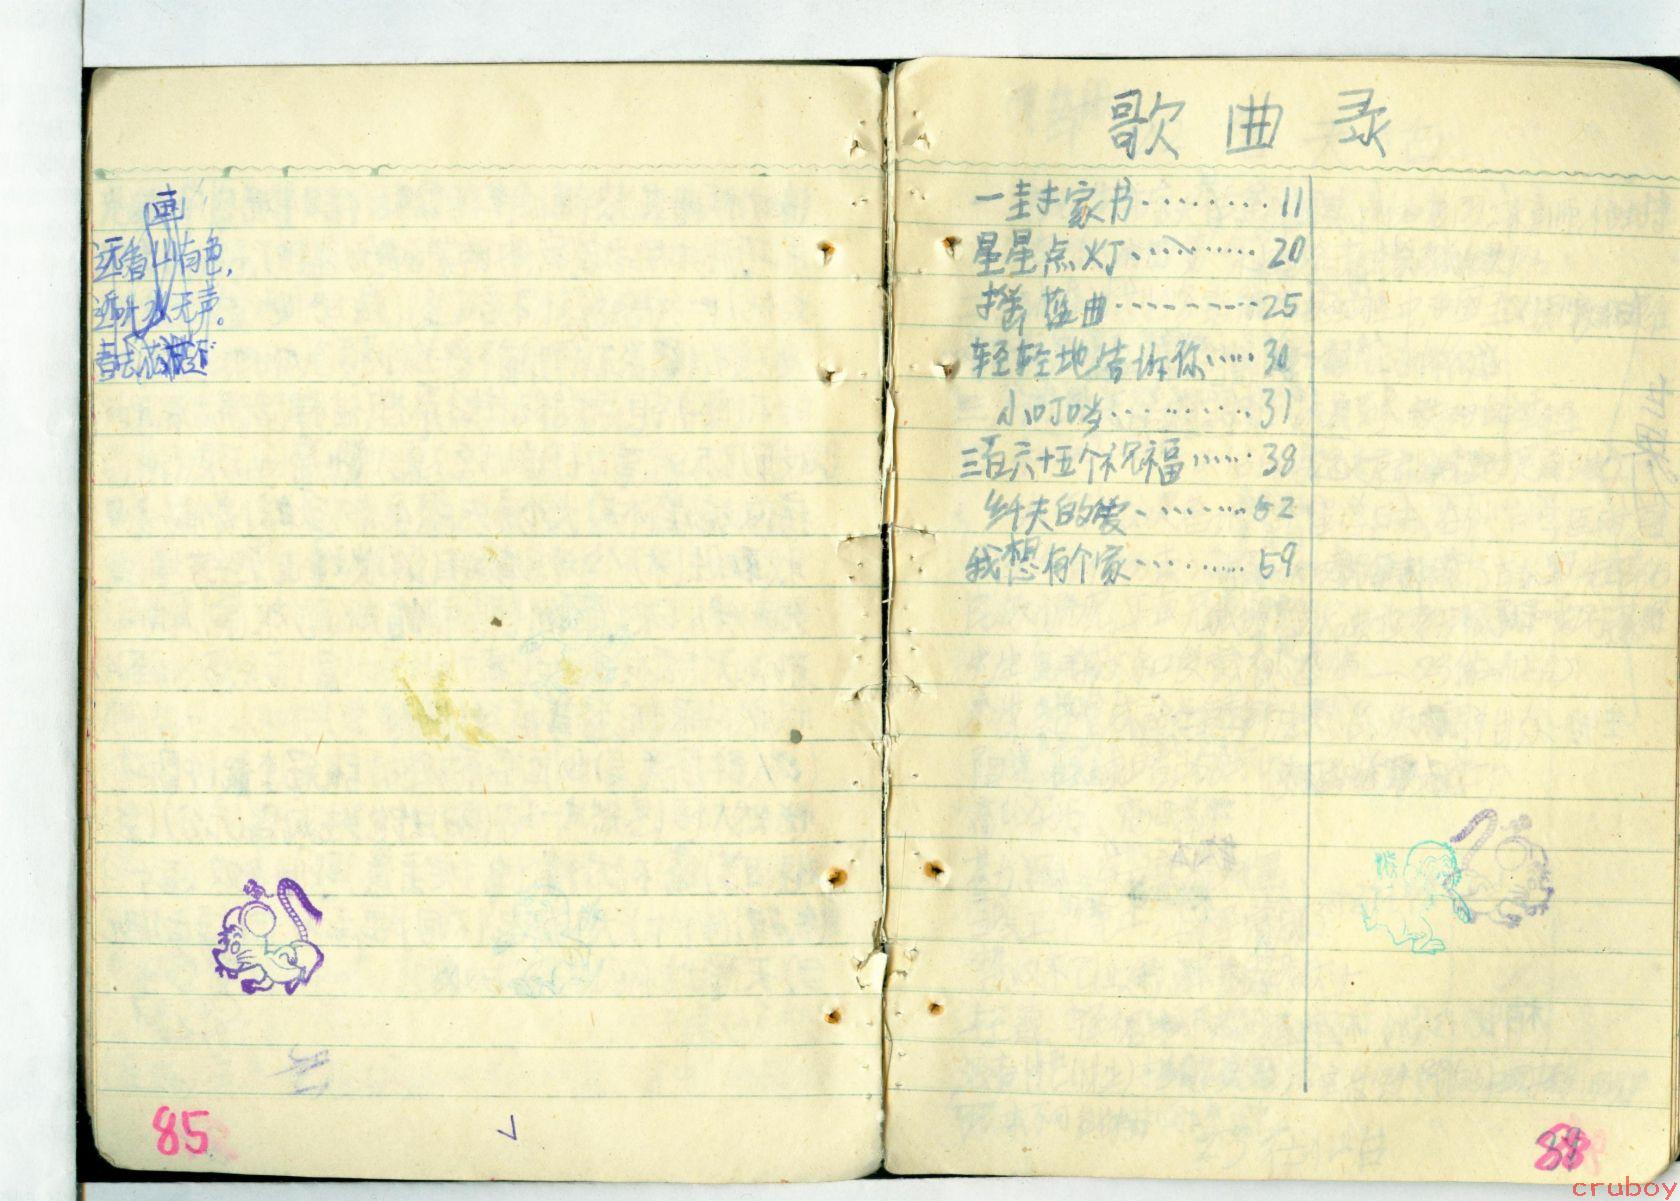 画
远看山有色，
近听水无声。
春去花
85
歌曲录
一封家书·········11
星星点灯·········20
摇篮曲·········25
轻轻地告诉你·····30
小叮当·········31
三百六十五个祝福·····38
纤夫的爱·········52
我想有个家·········59
cruboy